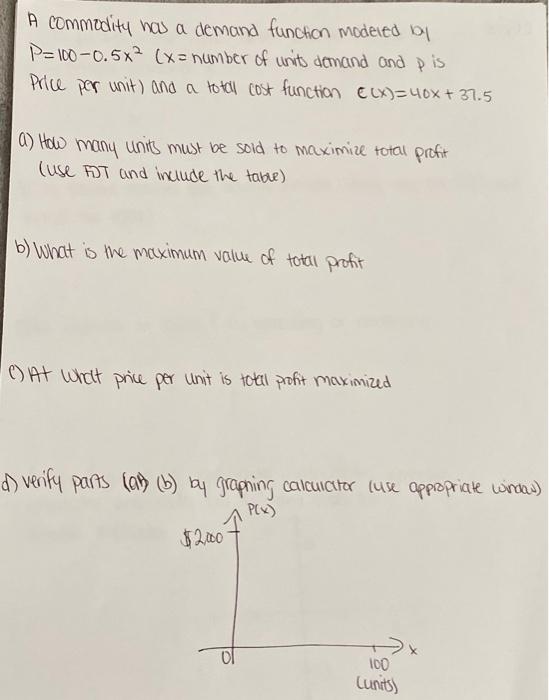 A commodity has a demand function modeled by
P=100-0.5x² (x=number of units demand and p is
Price per unit) and a total cost function C(x)=40x+37.5
a) How many units must be sold to maximize total profit
(use FDT and include the table)
b) What is the maximum value of total profit
c) At what price per unit is total profit maximized
d) verify parts (a) (b) by graphing calculator (use appropriate window)
P(x)
$2,000
x
0
100
(units)